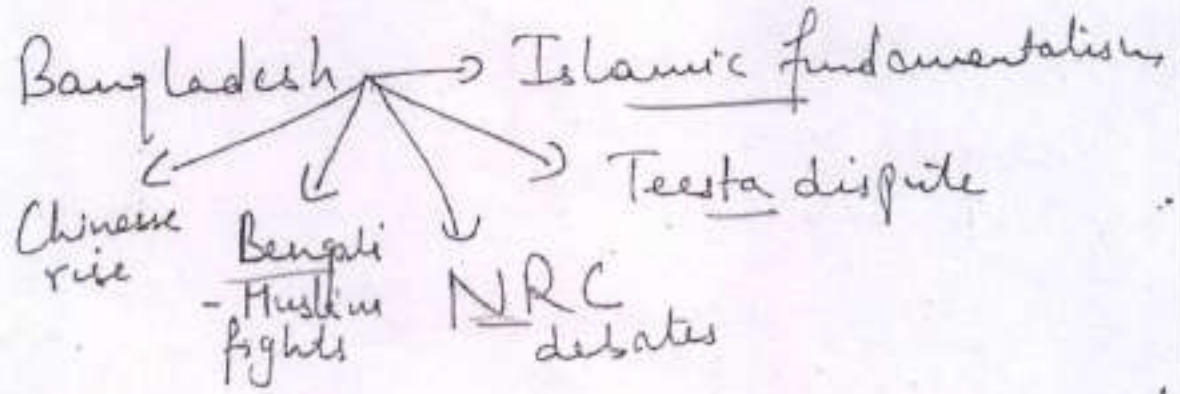 Bangladesh → Islamic fundamentalism
Teesta dispute
Chinesse
rise
Bengali
- Muslim
fights
NRC
debates